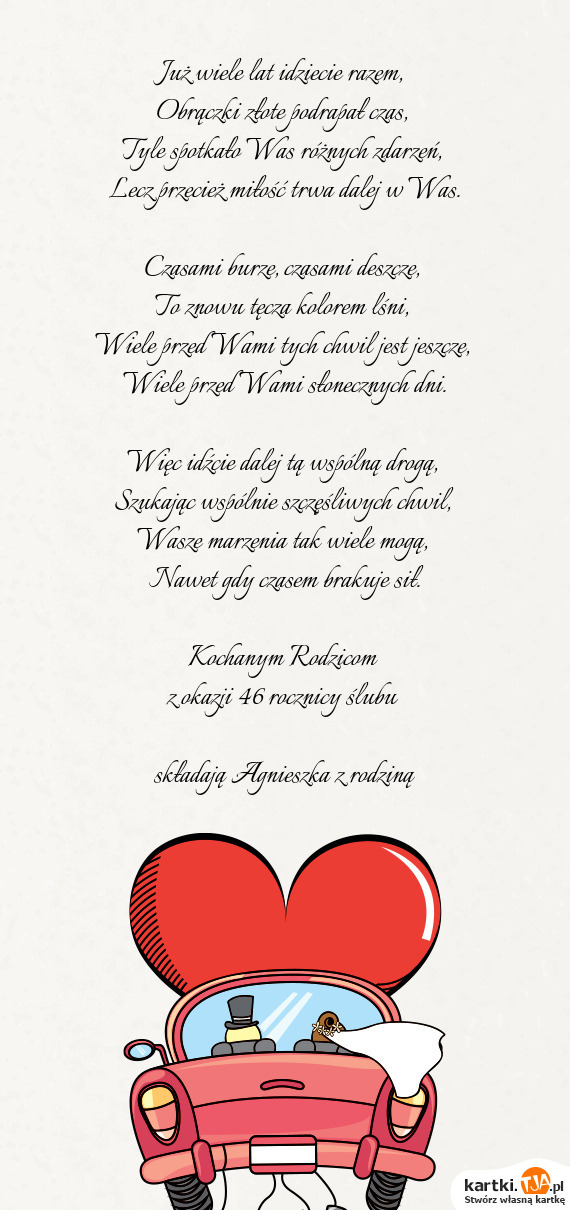 Już wiele lat idziecie razem,
Obrączki złote podrapał czas,
Tyle spotkało Was różnych zdarzeń,
Lecz przecież miłość trwa dalej w Was.
Czasami burze, czasami deszcze,
To znowu tęcza kolorem lśni,
Wiele przed Wami tych chwil jest jeszcze,
Wiele przed Wami słonecznych dni.
Więc idźcie dalej tą wspólną drogą,
Szukając wspólnie szczęśliwych chwil,
Wasze marzenia tak wiele mogą,
Nawet gdy czasem brakuje sił.
Kochanym Rodzicom
z okazji 46 rocznicy ślubu
składają Agnieszka z rodziną
kartki.TJA.pl
Stwórz własną kartkę